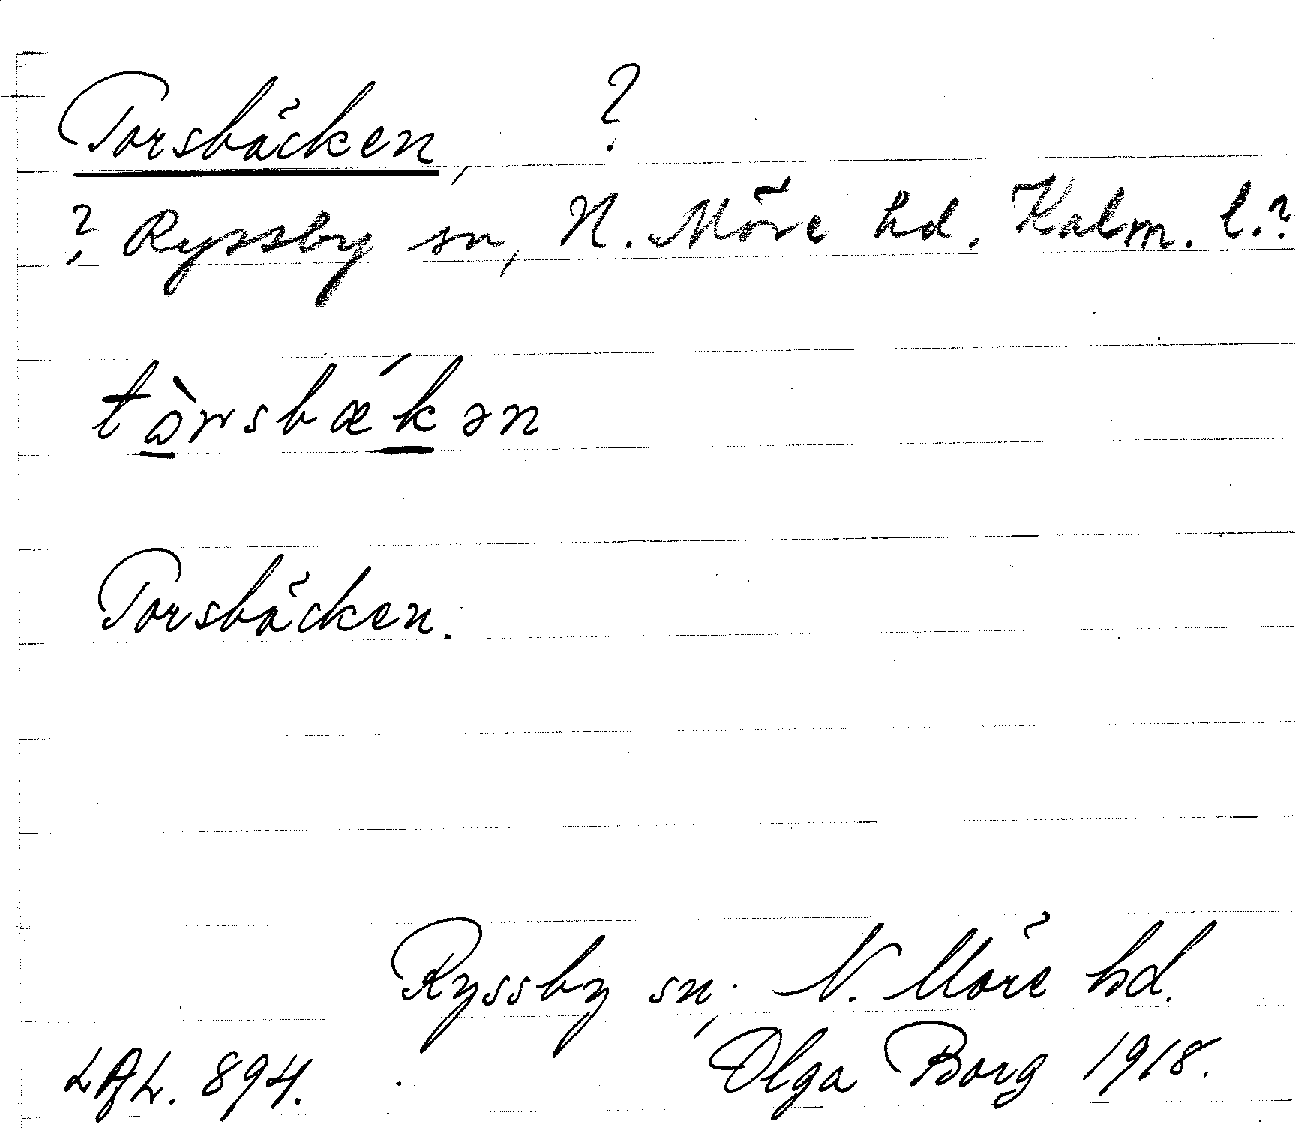 Torsbäcken, ?
? Ryssby sn, N. Möre hd. Kalm. l.?
tòrsbækən
Torsbäcken.
Ryssby sn, N. Möre hd.
LAL. 894. Olga Borg 1918.